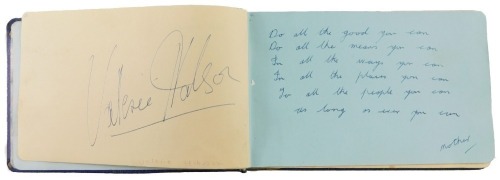 Valerie Hobson
Do all the good you can
Do all the means you can
In all the ways you can
In all the places you can
To all the people you can
as long as ever you can
mother